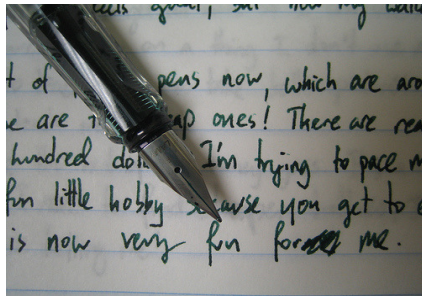 feels great, but now my
t of pens now, which are aro
e are cheap ones! There are rea
hundred dol I'm trying to pace m
fun little hobby because you get to e
is now very fun for me.